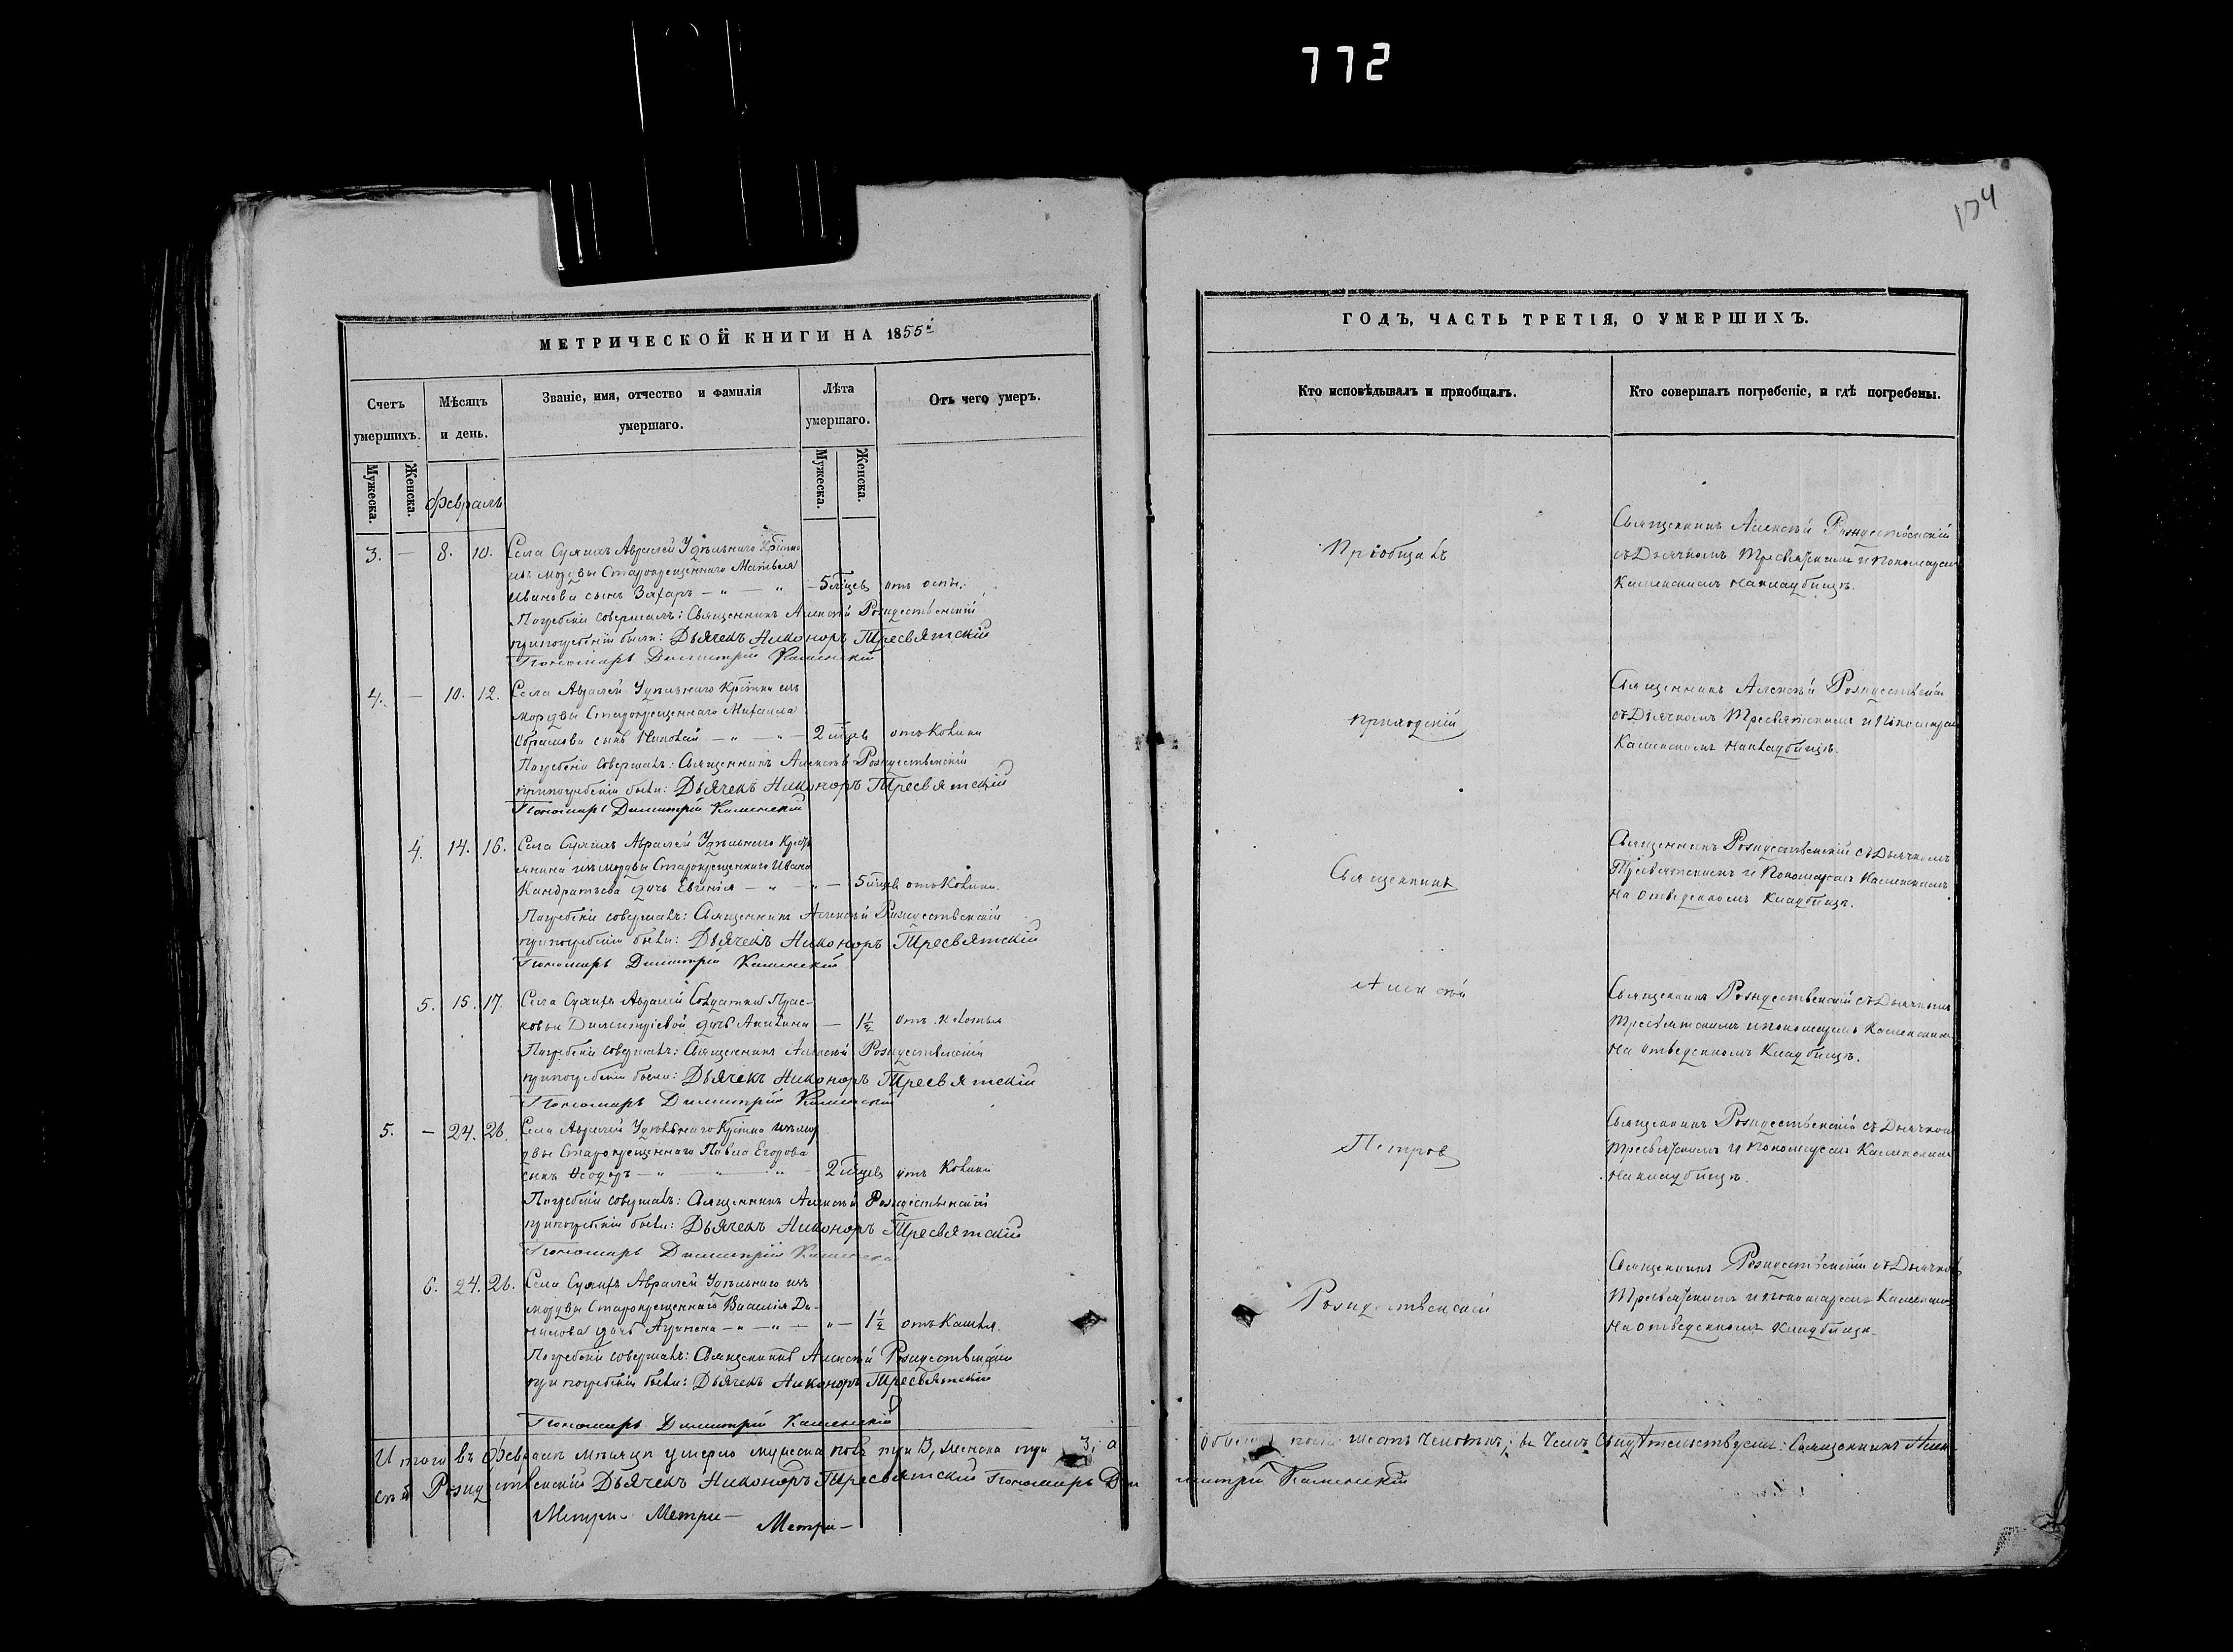 772
174
МЕТРИЧЕСКОЙ КНИГИ НА 1855й
ГОДЪ, ЧАСТЬ ТРЕТІЯ, О УМЕРШИХЪ.
Счетъ умершихъ.
Мѣсяцъ и день.
Званіе, имя, отчество и фамилія умершаго.
Лѣта умершаго.
Отъ чего умеръ.
Кто исповѣдывалъ и пріобщалъ.
Кто совершалъ погребеніе, и гдѣ погребены.
Мужеска. Женска.
Мужеска. Женска.
Февраль
3. — 8. 10. Села Авралей Удѣльнаго
изъ мордвы Старокрещеннаго Матвѣя
Иванова сынъ Захаръ — 5 отъ оспы.
Погребеніе совершалъ: Священникъ Алексѣй Рождественскій
при погребеніи были: Дьячекъ Никоноръ Тресвятскій
Пономарь Димитрій Каменскій
Священникъ Алексѣй Рождественскій
съ Дьячкомъ Тресвятскимъ и Пономаремъ
Каменскимъ на кладбищѣ.
4. — 10. 12. Села Авралей Удѣльнаго изъ
мордвы Старокрещеннаго Михаила
сынъ — 2
Погребеніе совершалъ: Священникъ Алексѣй Рождественскій
при погребеніи были: Дьячекъ Никоноръ Тресвятскій
Пономарь Димитрій Каменскій
Священникъ Алексѣй Рождественскій
съ Дьячкомъ Тресвятскимъ и Пономаремъ
Каменскимъ на кладбищѣ.
4. 14. 16. Села Авралей Удѣльнаго Кресть
янина изъ мордвы Старокрещеннаго Ивана
Кандратьева дочь Евгенія — 5
Погребеніе совершалъ: Священникъ Алексѣй Рождественскій
при погребеніи были: Дьячекъ Никоноръ Тресвятскій
Пономарь Димитрій Каменскій
Священникъ Рождественскій съ Дьячкомъ
Тресвятскимъ и Пономаремъ Каменскимъ
на отведенномъ кладбищѣ.
5. 15. 17. Села Авралей Солдатки Прас-
ковьи Димитріевой дочь — 1½
Погребеніе совершалъ: Священникъ Алексѣй Рождественскій
при погребеніи были: Дьячекъ Никоноръ Тресвятскій
Пономарь Димитрій Каменскій
Священникъ Рождественскій съ Дьячкомъ
Тресвятскимъ и Пономаремъ Каменскимъ
на отведенномъ кладбищѣ.
5. — 24. 26. Села Авралей Удѣльнаго изъ мор
двы Старокрещеннаго Павла Егорова
сынъ Ѳеодоръ — 2
Погребеніе совершалъ: Священникъ Алексѣй Рождественскій
при погребеніи были: Дьячекъ Никоноръ Тресвятскій
Пономарь Димитрій Каменскій
Священникъ Рождественскій съ Дьячкомъ
Тресвятскимъ и Пономаремъ Каменскимъ
на кладбищѣ.
6. 24. 26. Села Авралей Удѣльнаго изъ
мордвы Старокрещеннаго Василія Да-
нилова дочь — 1½ отъ кашля.
Погребеніе совершалъ: Священникъ Алексѣй Рождественскій
при погребеніи были: Дьячекъ Никоноръ Тресвятскій
Пономарь Димитрій Каменскій
Священникъ Рождественскій съ Дьячкомъ
Тресвятскимъ и Пономаремъ
на отведенномъ кладбищѣ.
Пріобщалъ
приходскій
Священникъ
Алексѣй
Петровъ
Рождественскій
Итого въ Февралѣ мѣсяцѣ умерло мужеска пола три 3, женска три 3, а
обоего пола шесть человѣкъ; въ чемъ свидѣтельствуемъ: Священникъ Алек-
сѣй Рождественскій Дьячекъ Никоноръ Тресвятскій Пономарь Ди
митрій Каменскій
Метри- Метри-
Метри-